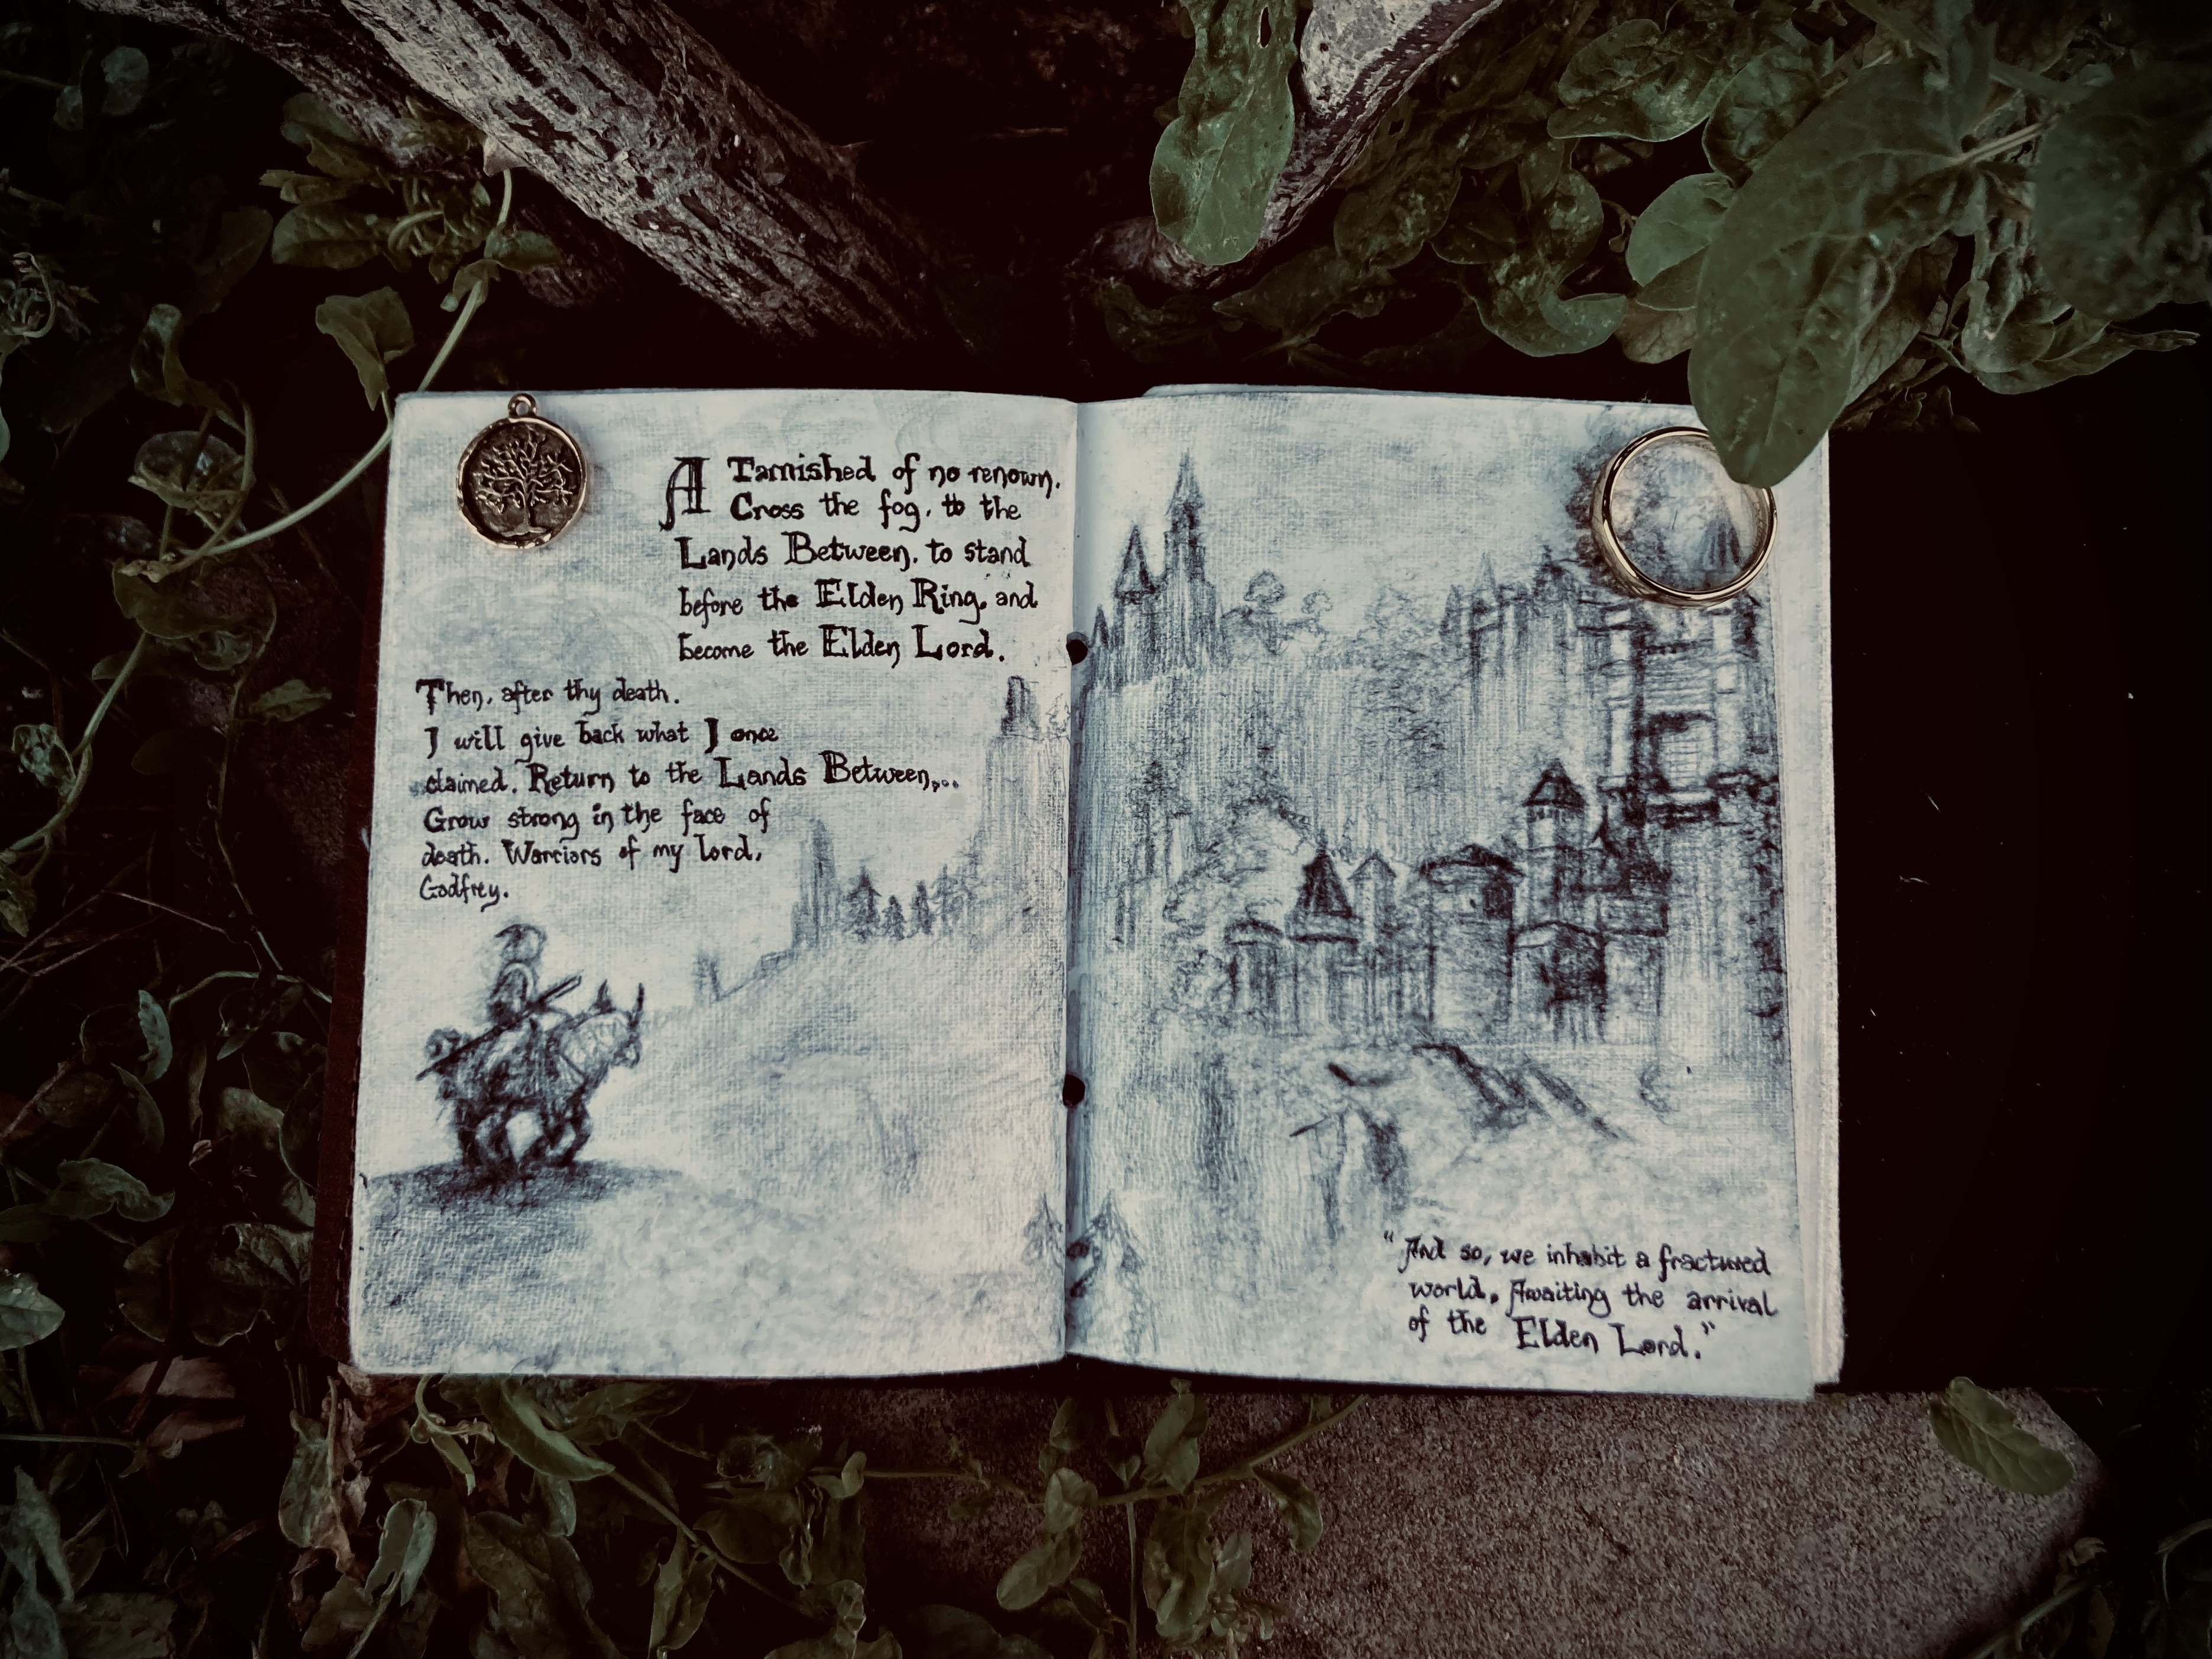 A Tarnished of no renown.
Cross the fog, to the
Lands Between, to stand
before the Elden Ring, and
become the Elden Lord.
Then, after thy death.
I will give back what I once
claimed. Return to the Lands Between,...
Grow strong in the face of
death. Warriors of my lord,
Godfrey.
"And so, we inhabit a fractured
world. Awaiting the arrival
of the Elden Lord."